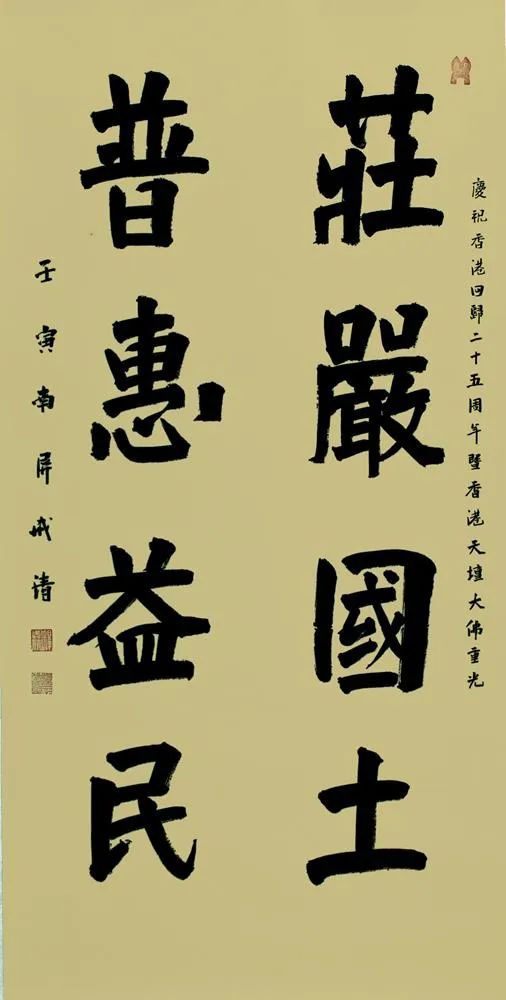 慶祝香港回歸二十五周年暨香港天壇大佛重光
莊嚴國土
普惠益民
壬寅南屏戒清